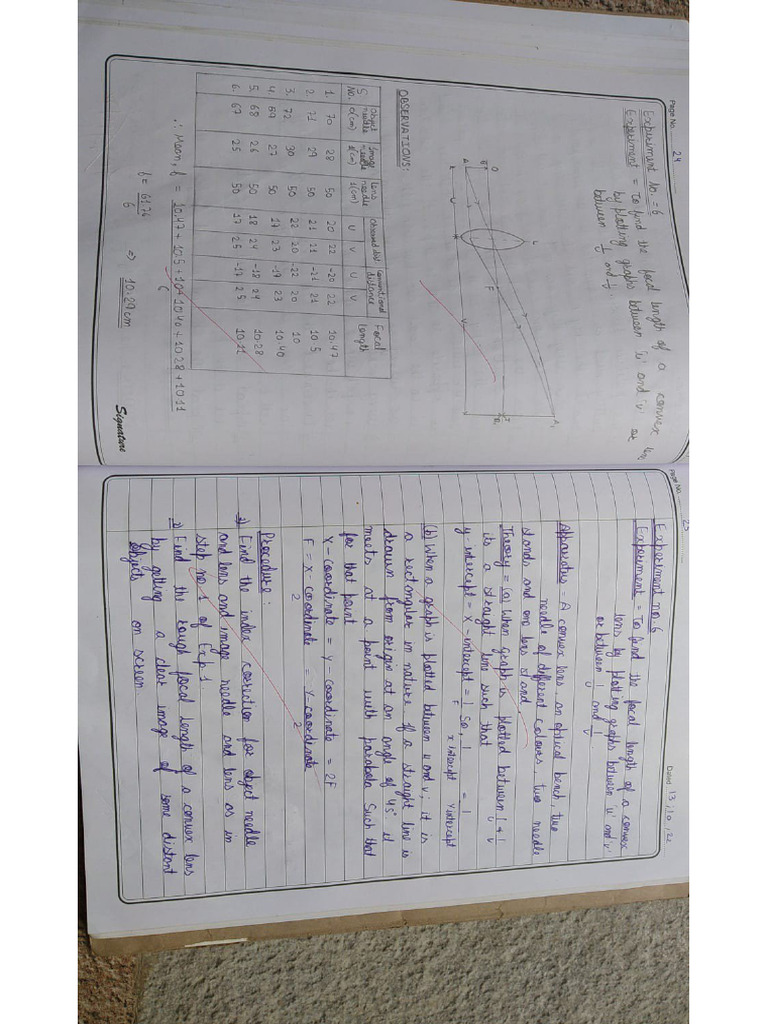 Page No. 24
Experiment No. = 6
Experiment = To find the focal length of a convex len
by plotting graphs between 'u' and 'v' or
between 1/u and 1/v.
OBSERVATIONS:
S No. Object needle O(cm) Image needle I(cm) Lens needle L(cm) Observed dist. U V Conventional distance U V Focal length
1. 70 28 50 20 22 -20 22 10.47
2. 71 29 50 21 21 -21 21 10.5
3. 72 30 50 22 20 -22 20 10
4. 69 27 50 19 23 -19 23 10.40
5. 68 26 50 18 24 -18 24 10.28
6. 67 25 50 17 25 -17 25 10.11
∴ Mean, f = 10.47 + 10.5 + 10+ 10.40 + 10.28 + 10.11 / 6
f = 61.76 / 6 ⇒ 10.29 cm
Signature
Page No. 25
Dated 13/10/22
Experiment no. 6
Experiment = To find the focal length of a convex
lens by plotting graphs between 'u' and 'v'
or between 1/u and 1/v.
Apparatus = A convex lens, an optical bench, two
needle of different colours, two needle
stands, and one lens stand
Theory = (a) When graph is plotted between 1/u & 1/v
its a straight line such that
y-intercept = X-intercept = 1/F So, 1/x intercept = 1/y intercept
(b) When a graph is plotted between u and v; it is
a rectangular in nature if a straight line is
drawn from origin at an angle of 45° it
meets at a point with parabola Such that
for that point
X-coordinate = y-coordinate = 2F
F = X-coordinate / 2 = Y coordinate / 2
Procedure:
Find the index correction for object needle
and lens and image needle and lens as in
step no. 1 of Exp 1.
Find the rough focal length of a convex lens
by getting a clear image of some distant
objects on screen